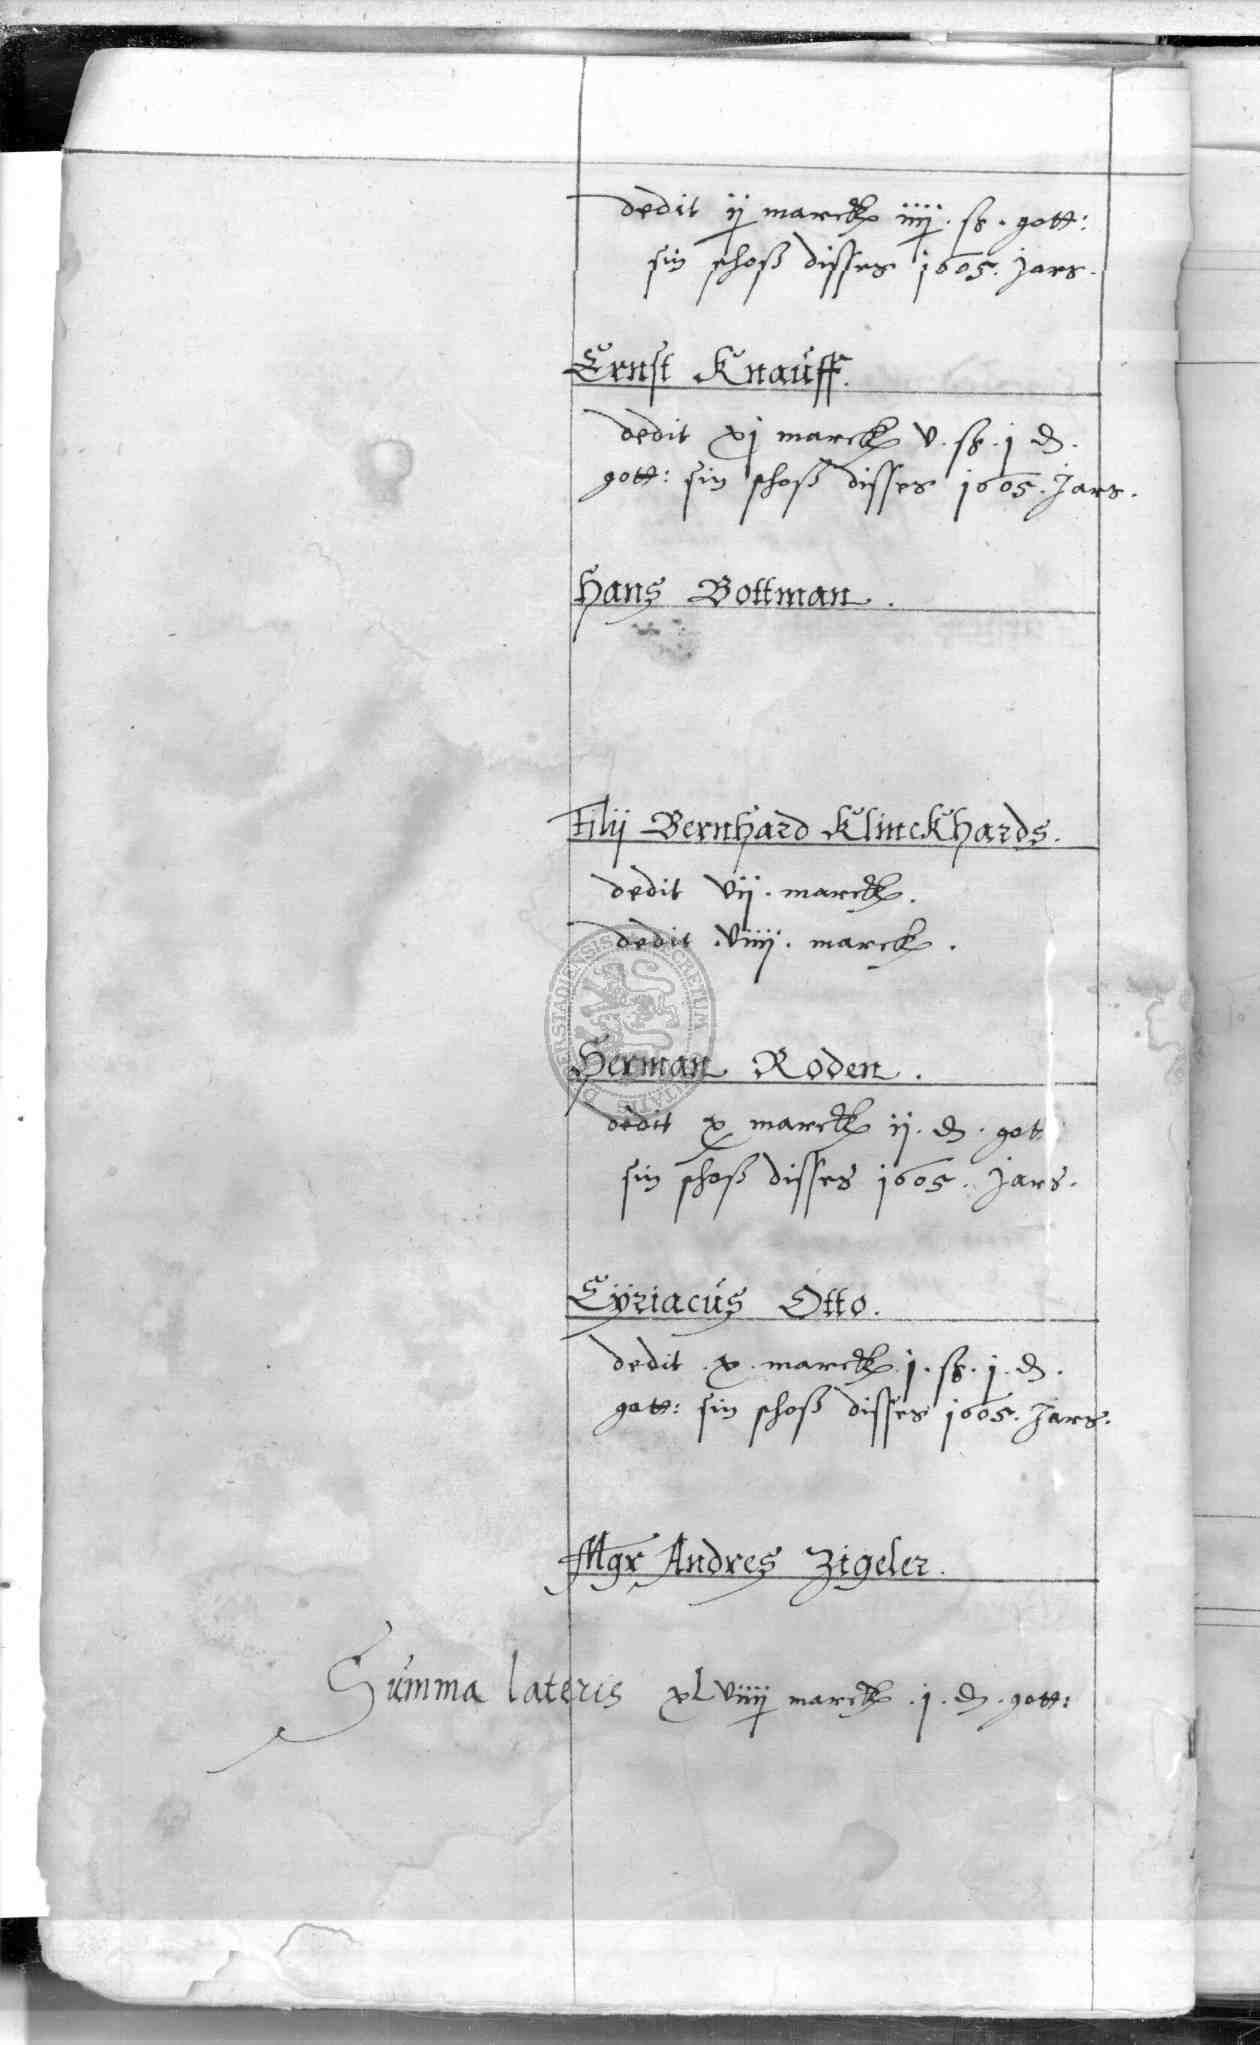 dedit ij marck iiij. ß. gott:
sin schoß disses 1605. Jars.
Ernst Knauff.
dedit xj marck v. ß. j ₰.
gott: sin schoß disses 1605. Jars.
Hans Bottman.
Filij Bernhard Klinckhards.
dedit vij. marck.
dedit .viiij. marck.
Herman Roden.
dedit x marck ij. ₰. got
sin schoß disses 1605. Jars.
Cÿriacus Otto.
dedit .x. marck j. ß. j. ₰.
gott: sin schoß disses 1605. Jars.
Mgr Andres Zigeler.
Summa lateris xLviiij marck .j. ₰. gott:
SECRETUM